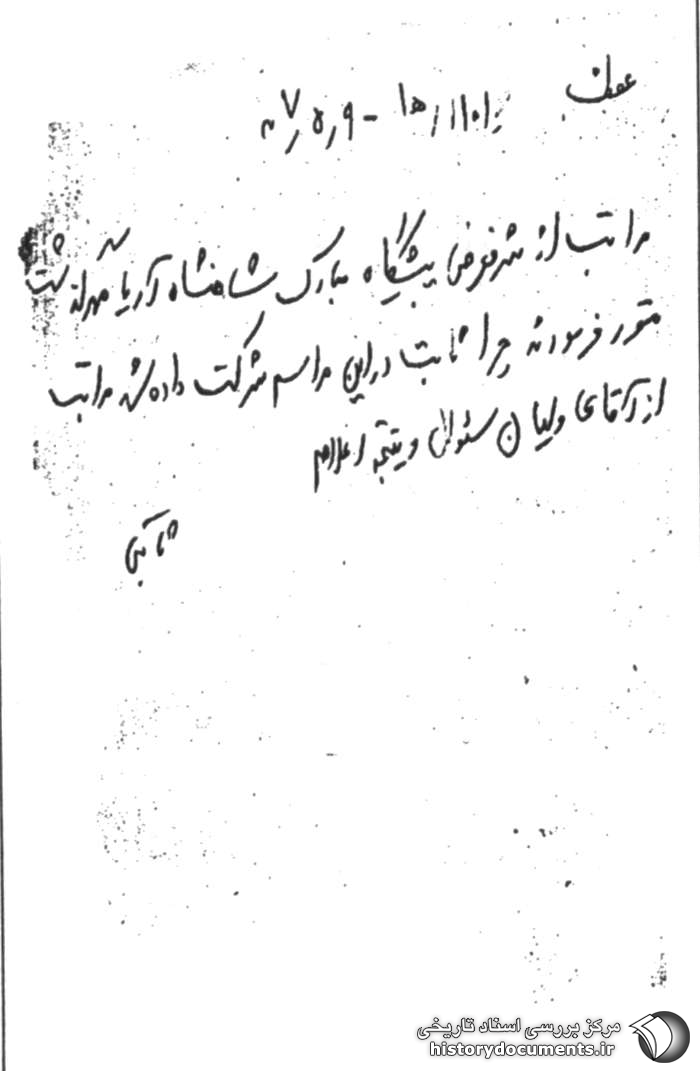 عطف
مراتب از شرفعرض پیشگاه مبارک شاهنشاه آریامهر گذشت
مقرر فرمودند چرا ثابت در این مراسم شرکت داده شد مراتب
از آقای ولیان سئوال و نتیجه اعلام
مرکز بررسی اسناد تاریخی
historydocuments.ir